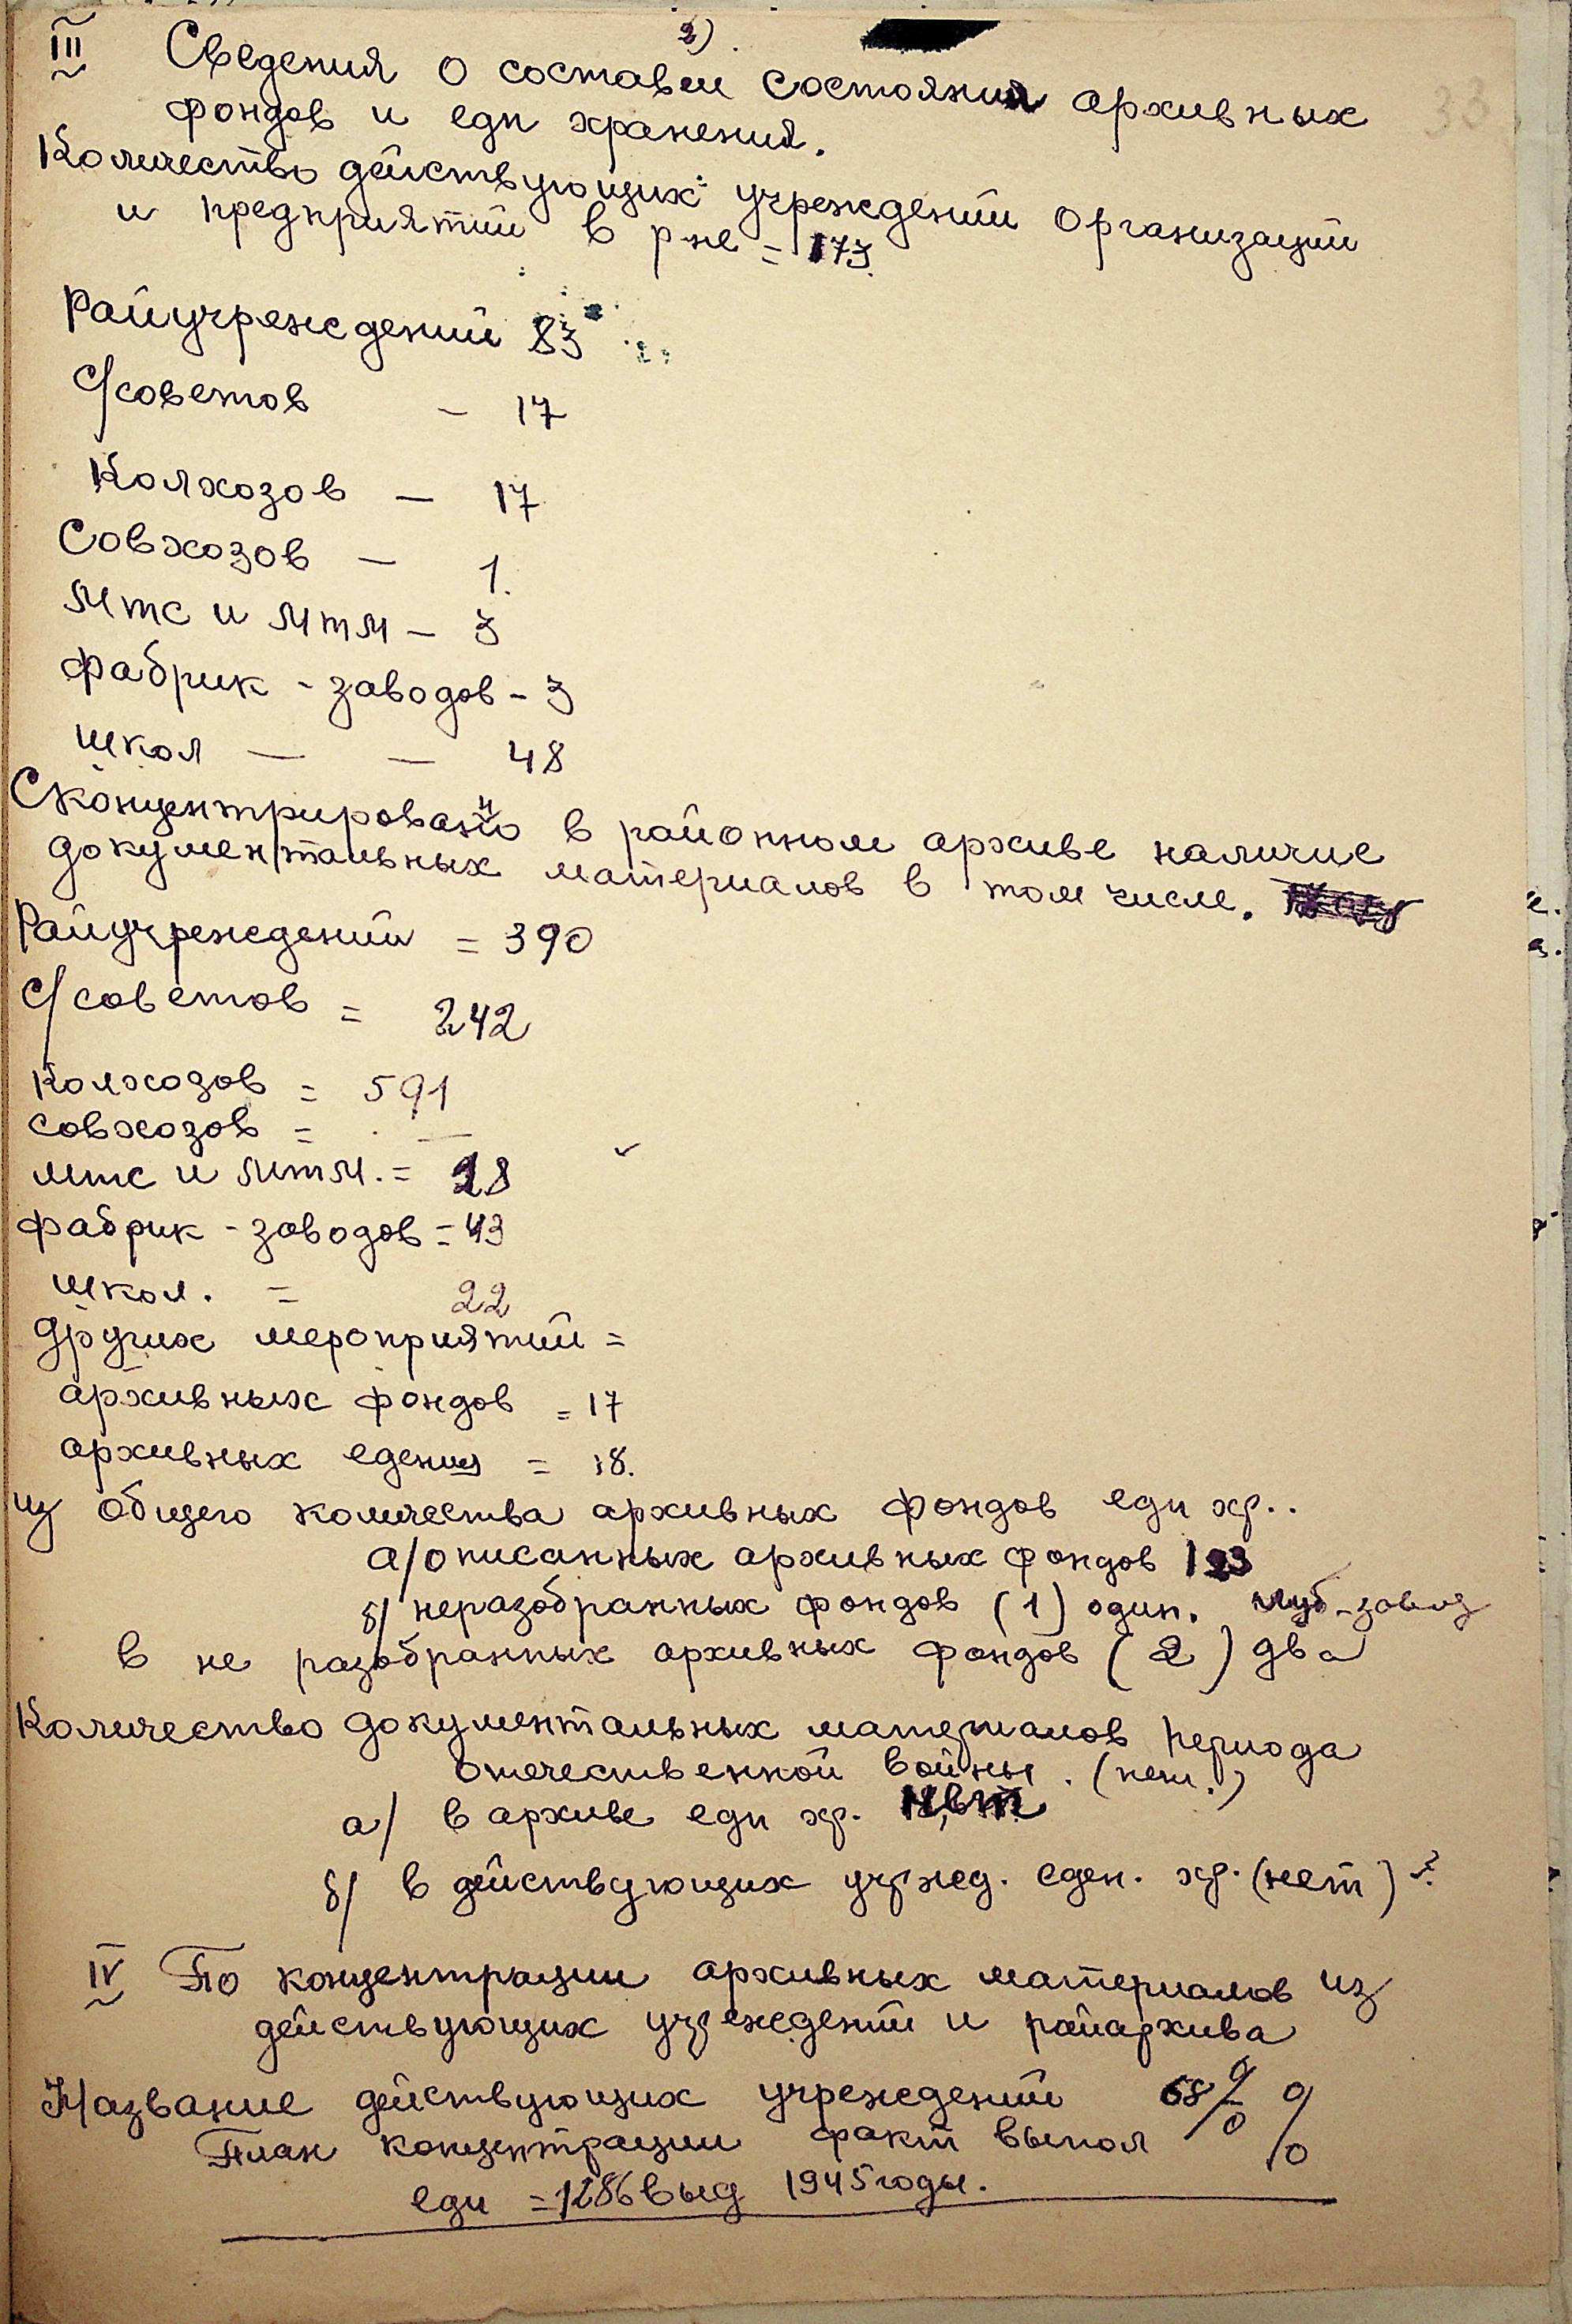 2)
33
III Сведения о составе и состоянии архивных
фондов и еди хранения.
Количество действующих учреждений организаций
и предприятий в р-не = 173.
Райучреждений 83
С/советов - 17
Колхозов - 17
Совхозов - 1.
Мтс и Мтм - 3
Фабрик - заводов - 3
школ — — 48
Сконцентрировано в районном архиве наличие
документальных материалов в том числе.
Райучреждений = 390
С/советов = 242
Колхозов = 591
совхозов = —
мтс и мтм. = 28
фабрик - заводов = 43
школ. = 22
других мероприятий =
архивных фондов = 17
архивных едениц = 18.
из общего количества архивных фондов еди хр..
а/ описанных архивных фондов 123
б/ неразобранных фондов (1) один.
в не разобранных архивных фондов (2) два
Количество документальных материалов периода
Отечественной войны. (нет.)
а/ в архиве еди хр. Нет
б/ в действующих учрежд. еден. хр. (нет) ?
IV По концентрации архивных материалов из
действующих учреждений и райархива
Название действующих учреждений 68% %
План концентрации факт выпол
еди = 1286 выд 1945 годы.